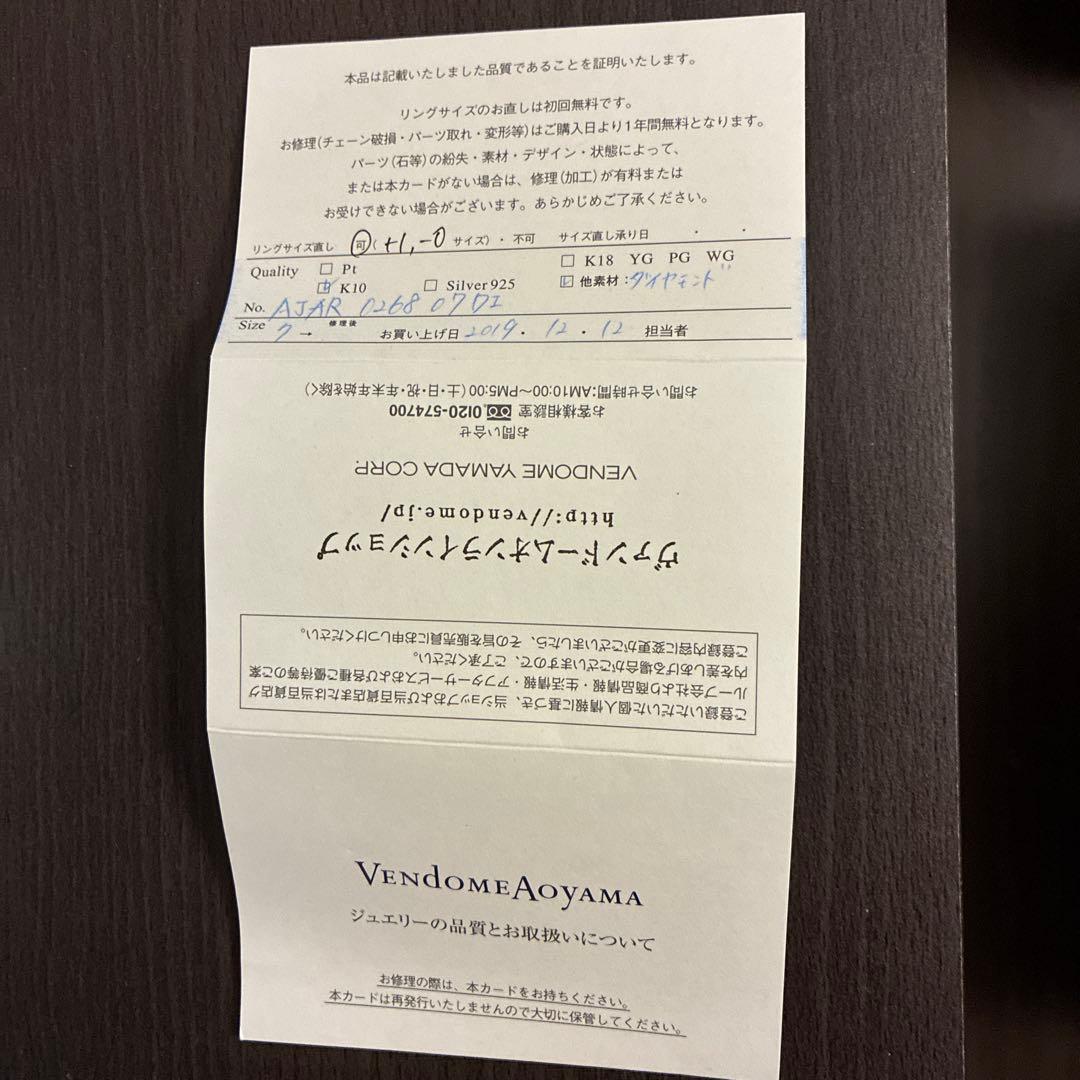 本品は記載いたしました品質であることを証明いたします。
リングサイズのお直しは初回無料です。
お修理(チェーン破損・パーツ取れ・変形等)はご購入日より1年間無料となります。
パーツ(石等)の紛失・素材・デザイン・状態によって、
または本カードがない場合は、修理(加工)が有料または
お受けできない場合がございます。あらかじめご了承ください。
リングサイズ直し 可(+1,-0 サイズ)・不可 サイズ直し承り日 ・ ・
Quality □ Pt □ K18 YG PG WG
☑ K10 □ Silver925 ☑ 他素材:ダイヤモンド
No. AJAR 0268 07 DI
Size 7 → 修理後 お買い上げ日 2019・12・12 担当者
ご登録いただいた個人情報に基づき、当ショップおよび当百貨店または当百貨店グ
ループ会社より商品情報・生活情報・アフターサービスおよび各種ご優待等のご案
内を差しあげる場合がございますので、ご了承ください。
ご登録内容に変更がございましたら、その旨を販売員にお申しつけください。
ヴァンドームオンラインショップ
http://vendome.jp/
VENDOME YAMADA CORP.
お問い合せ
お客様相談室 0120-574700
お問い合せ時間:AM10:00〜PM5:00(土・日・祝・年末年始を除く)
VENDOME AOYAMA
ジュエリーの品質とお取扱いについて
お修理の際は、本カードをお持ちください。
本カードは再発行いたしませんので大切に保管してください。